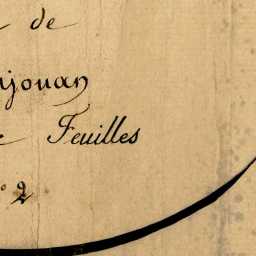 de
njouan
Feuilles
º 2